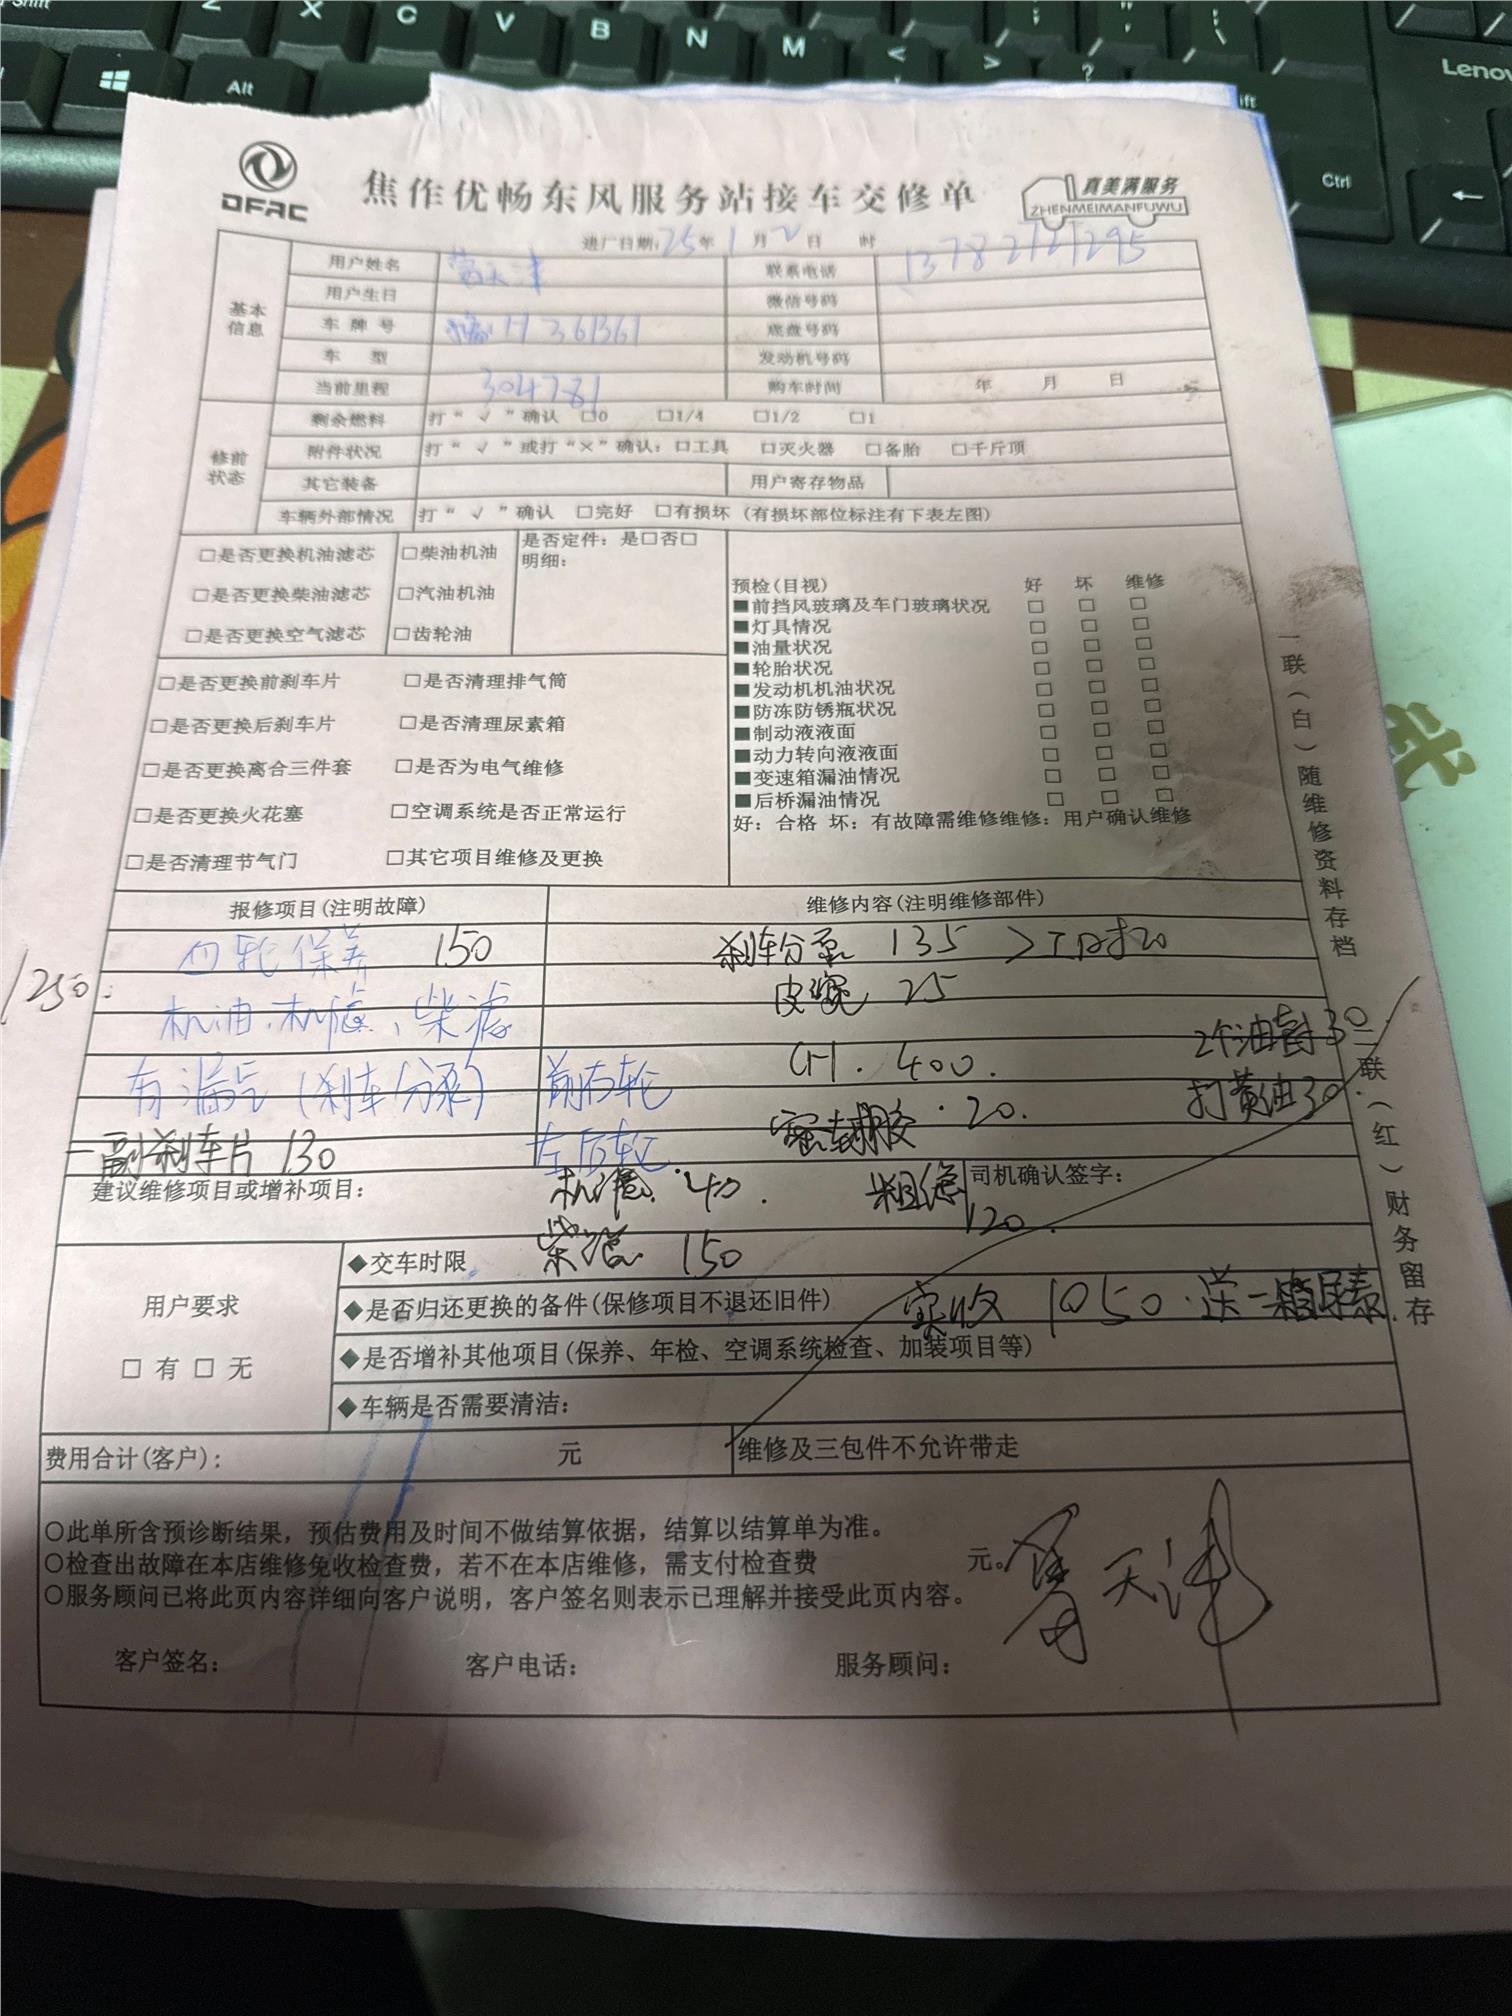 Shift
Z X C V B N M < > ?
Alt
Ctrl
Lenovo
DFAC
焦作优畅东风服务站接车交修单
真美满服务
ZHENMEIMANFUWU
进厂日期:25年1月2日 时
基本信息
用户姓名 天津 联系电话 13782121295
用户生日 微信号码
车牌号 豫H361361 底盘号码
车型 发动机号码
当前里程 304781 购车时间 年 月 日
修前状态
剩余燃料 打“√”确认 □0 □1/4 □1/2 □1
附件状况 打“√”或打“×”确认:□工具 □灭火器 □备胎 □千斤顶
其它装备 用户寄存物品
车辆外部情况 打“√”确认 □完好 □有损坏 (有损坏部位标注有下表左图)
□是否更换机油滤芯 □柴油机油 是否定件:是□否□
明细:
□是否更换柴油滤芯 □汽油机油
□是否更换空气滤芯 □齿轮油
预检(目视) 好 坏 维修
■前挡风玻璃及车门玻璃状况 □ □ □
■灯具情况 □ □ □
■油量状况 □ □ □
■轮胎状况 □ □ □
■发动机机油状况 □ □ □
■防冻防锈瓶状况 □ □ □
■制动液液面 □ □ □
■动力转向液液面 □ □ □
■变速箱漏油情况 □ □ □
■后桥漏油情况 □ □ □
好:合格 坏:有故障需维修维修:用户确认维修
□是否更换前刹车片 □是否清理排气筒
□是否更换后刹车片 □是否清理尿素箱
□是否更换离合三件套 □是否为电气维修
□是否更换火花塞 □空调系统是否正常运行
□是否清理节气门 □其它项目维修及更换
一联(白)随维修资料存档
二联(红)财务留存
报修项目(注明故障) 维修内容(注明维修部件)
四轮保养 150 刹车分泵 135 >工时20
1250
皮绳 25
机油、机滤、柴滤
CH. 400. 2个油封30
有漏气(刹车分泵) 前右轮 密封胶. 20. 打黄油30.
一副刹车片 130 左后轮
建议维修项目或增补项目: 机滤. 40. 粗滤 120. 司机确认签字:
柴滤. 150
用户要求
□有□无
◆交车时限
◆是否归还更换的备件(保修项目不退还旧件) 实收 1050.送一箱尿素.
◆是否增补其他项目(保养、年检、空调系统检查、加装项目等)
◆车辆是否需要清洁:
费用合计(客户): 元 维修及三包件不允许带走
○此单所含预诊断结果,预估费用及时间不做结算依据,结算以结算单为准。
○检查出故障在本店维修免收检查费,若不在本店维修,需支付检查费 元。
○服务顾问已将此页内容详细向客户说明,客户签名则表示已理解并接受此页内容。
天津
客户签名: 客户电话: 服务顾问: